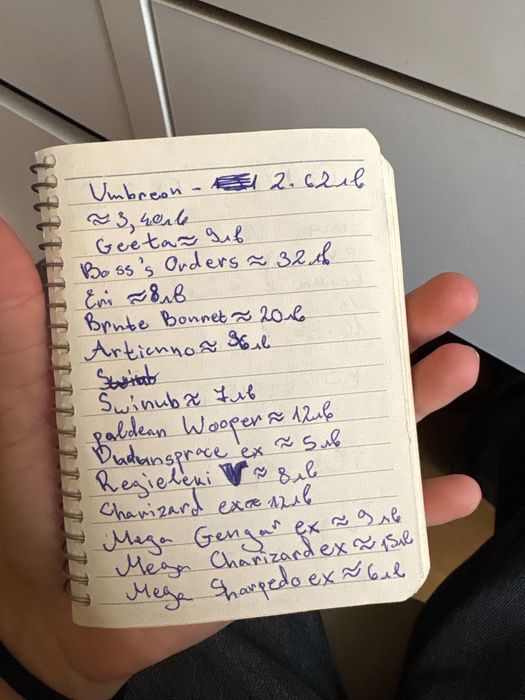 Umbreon - 2.62лв
≈ 3,40лв
Geeta ≈ 9лв
Boss's Orders ≈ 32лв
Eri ≈ 8лв
Brute Bonnet ≈ 20лв
Articuno ≈ 36лв
Swinub
Swinub ≈ 7лв
paldean Wooper ≈ 12лв
Dudunsprace ex ≈ 5лв
Regieleki V ≈ 8лв
Charizard ex ≈ 12лв
Mega Gengar ex ≈ 9лв
Mega Charizard ex ≈ 15лв
Mega Sharpedo ex ≈ 6лв